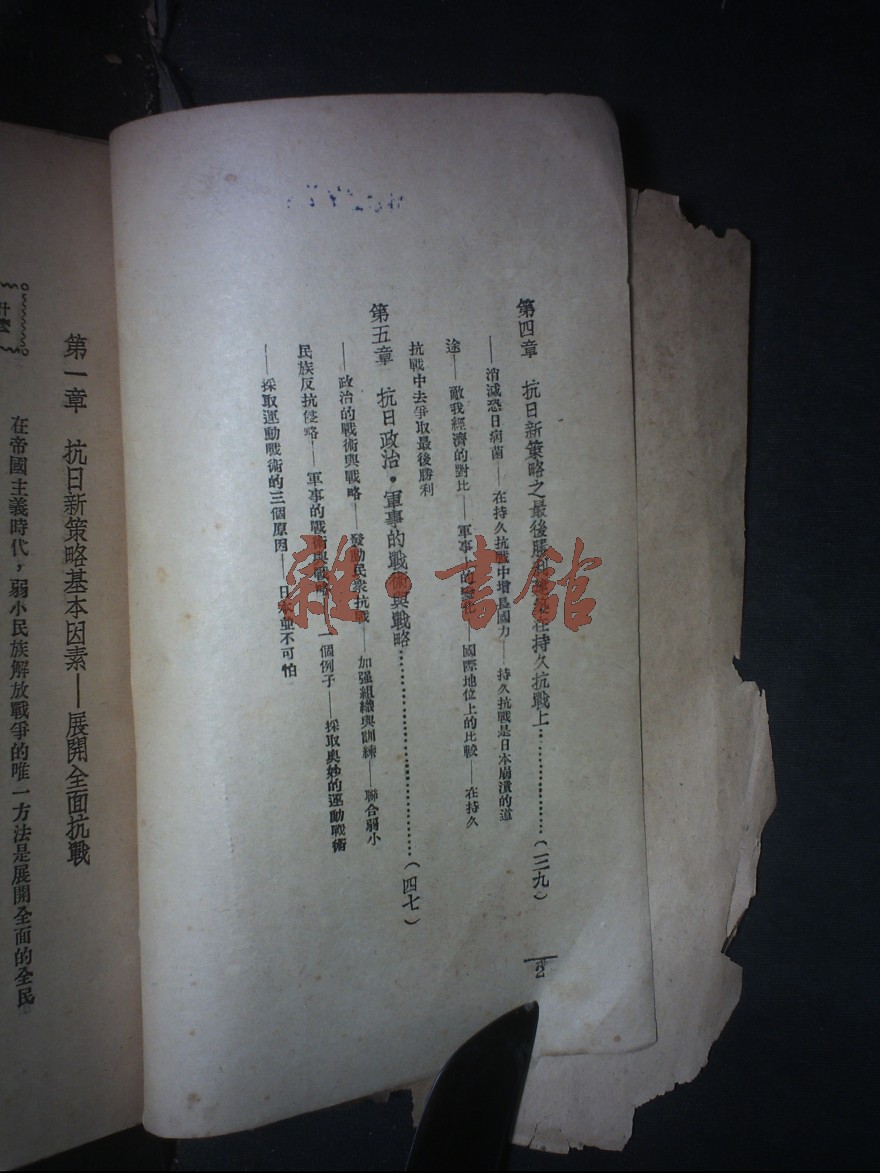 第四章　抗日新策略之最後勝利　在持久抗戰上…………………(三九)
——消滅恐日病菌——在持久抗戰中增長國力——持久抗戰是日本崩潰的道
途——敵我經濟的對比——軍事上的變化——國際地位上的比較——在持久
抗戰中去爭取最後勝利
第五章　抗日政治・軍事的戰術與戰略…………………(四七)
——政治的戰術與戰略——發動民衆抗戰——加强組織與訓練——聯合弱小
民族反抗侵略——軍事的戰術與戰略——一個例子——採取奧妙的運動戰術
——採取運動戰術的三個原因——日本並不可怕
2
第一章　抗日新策略基本因素——展開全面抗戰
在帝國主義時代，弱小民族解放戰爭的唯一方法是展開全面的全民
什麼
雜・書館